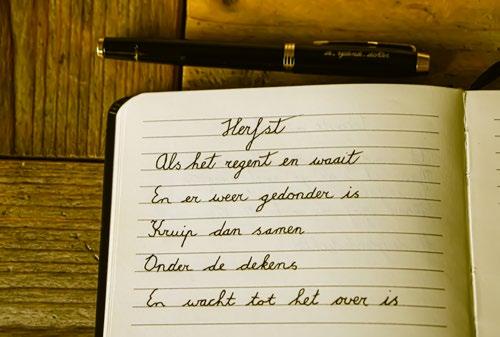 Herfst
Als het regent en waait
En er weer gedonder is
Kruip dan samen
Onder de dekens
En wacht tot het over is